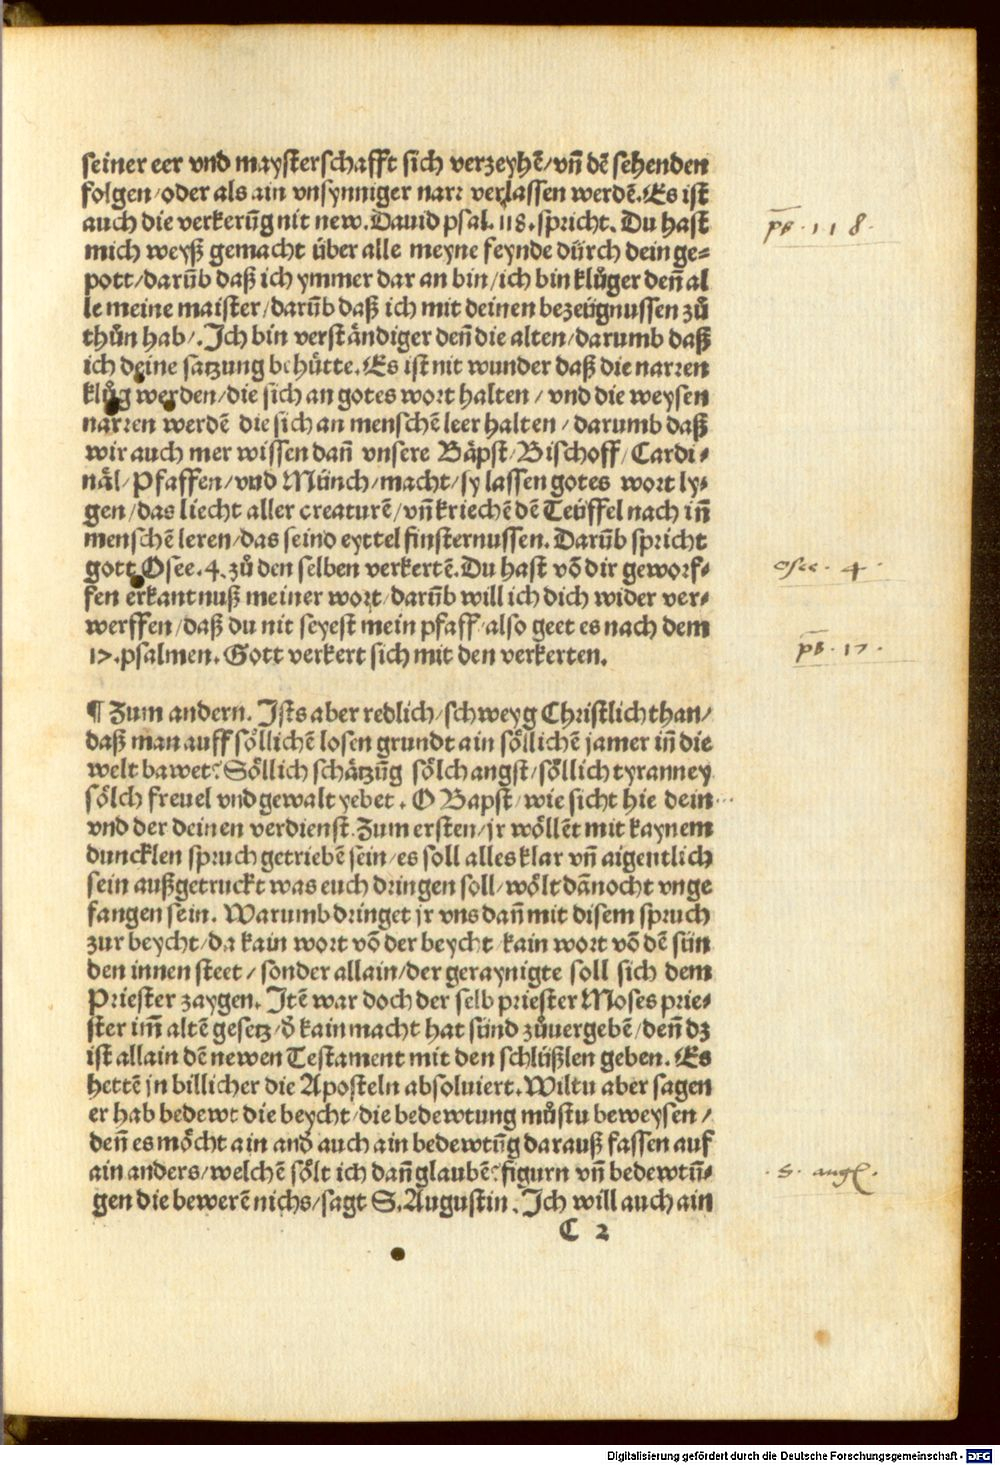 seiner eer vnd maysterschafft sich verzeyhē/vn̄ dē sehenden
folgen/oder als ain vnsynniger narr verlassen werdē.Es ist
auch die verkerūg nit new.Dauid psal.118.spricht.Du hast
mich weyß gemacht über alle meyne feynde dürch dein ge⸗
pott/darūb daß ich ymmer dar an bin/ich bin klůger den̄ al
le meine maister/darūb daß ich mit deinen bezeügnussen zů
thůn hab/.Ich bin verständiger den̄ die alten/darumb daß
ich deine satzung behůtte.Es ist nit wunder daß die narren
klůg werden/die sich an gotes wort halten/vnd die weysen
narren werdē die sich an menschē leer halten/darumb daß
wir auch mer wissen dan̄ vnsere Bäpst/Bischoff/Cardi⸗
näl/Pfaffen/vnd Münch/macht/sy lassen gotes wort ly⸗
gen/das liecht aller creaturē/vn̄ kriechē dē Teüffel nach in̄
menschē leren/das seind eyttel finsternussen.Darūb spricht
gott Osee.4.zů den selben verkertē.Du hast vō dir geworf⸗
fen erkantnuß meiner wort/darūb will ich dich wider ver⸗
werffen/daß du nit seyest mein pfaff/also geet es nach dem
17.psalmen.Gott verkert sich mit den verkerten.
¶ Zum andern.Ists aber redlich/schweyg Christlich than/
daß man auff söllichē losen grundt ain söllichē jamer in̄ die
welt bawet?Söllich schätzūg sölch angst/söllich tyranney
sölch freuel vnd gewalt yebet.O Bapst/wie sicht hie dein
vnd der deinen verdienst.Zum ersten/jr wöllēt mit kaynem
duncklen spruch getriebē sein/es soll alles klar vn̄ aigentlich
sein außgetruckt was euch dringen soll/wölt dānocht vnge
fangen sein.Warumb dringet jr vns dan̄ mit disem spruch
zur beycht/da kain wort vō der beycht/kain wort vō dē sün
den innen steet/sonder allain/der geraynigte soll sich dem
Priester zaygen.Itē war doch der selb priester Moses prie⸗
ster im̄ altē gesetz/d̄ kain macht hat sünd zůuergebē/den̄ dz
ist allain dē newen Testament mit den schlüßlen geben.Es
hettē jn billicher die Aposteln absoluiert.Wiltu aber sagen
er hab bedewt die beycht/die bedewtung můstu beweysen/
den̄ es möcht ain and̄ auch ain bedewtūg darauß fassen auf
ain anders/welchē sölt ich dan̄ glaubē?figurn vn̄ bedewtū⸗
gen die bewerē nichs/sagt S.Augustin.Ich will auch ain
C 2
ps.118.
osee.4.
ps.17.
.S. aug.
Digitalisierung gefördert durch die Deutsche Forschungsgemeinschaft - DFG